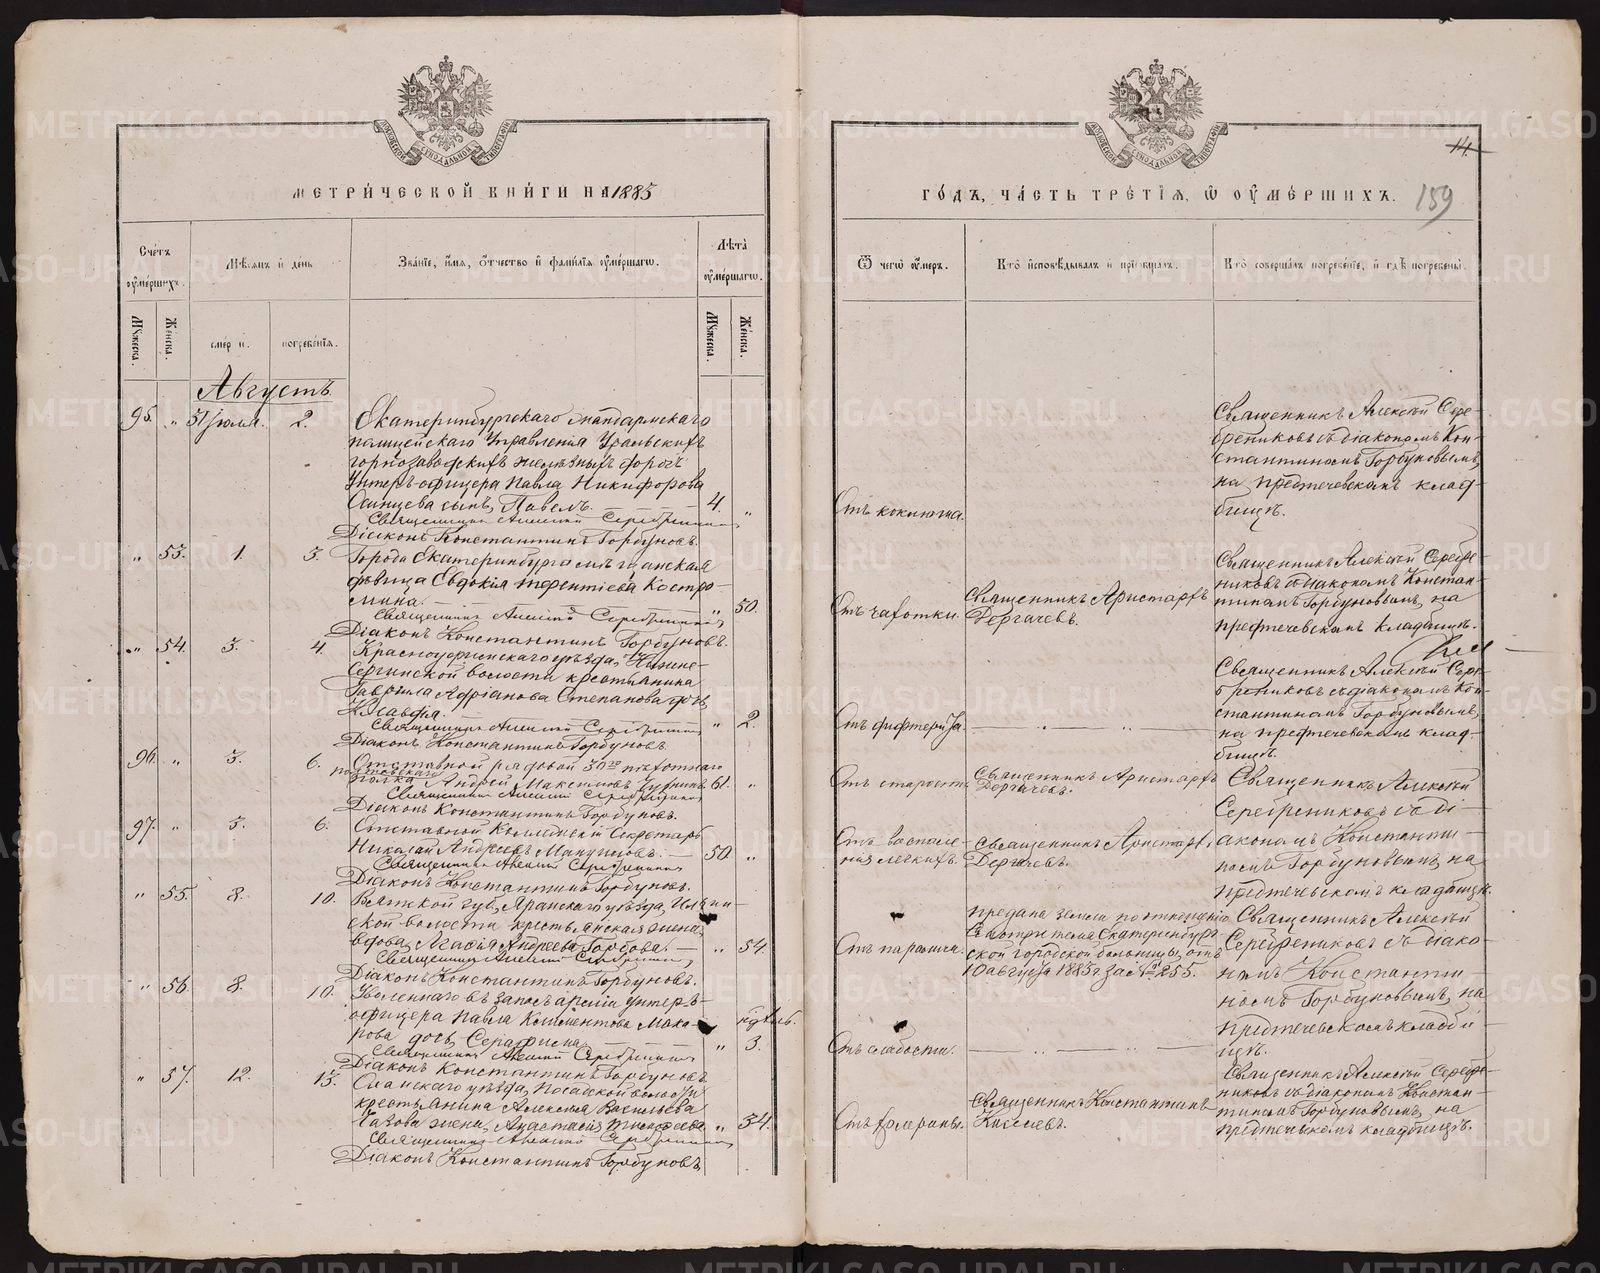 МОСКОВСКОЙ СѴНОДАЛЬНОЙ ТИПОГРАФІИ
МЕТРИ́ЧЕСКОЙ КНИ́ГИ НА 1885
Сче́тъ ᲂумершихъ.
Мѣсѧцъ и҆ день
Зва́нїе, и҆мѧ, ѻ҆́тчество и҆ фамилїѧ ᲂу҆ме́ршагѡ.
Лѣта̀ ᲂу҆ме́ршагѡ.
Мꙋжеска.
Же́нска.
смерти.
погребе́нїѧ.
Мꙋжеска.
Же́нска.
Августъ
95. " 31 Іюля. 2. Екатеринбургскаго жандармскаго
полицейскаго Управленія Уральскихъ
горнозаводскихъ желѣзныхъ дорогъ
Унтеръ-офицера Павла Никифорова
Осинцева сынъ, Павелъ. 4. "
Священникъ Алексій Серебрениковъ
Діаконъ Константинъ Горбуновъ.
" 53. 1. 3. Города Екатеринбурга мѣщанская
дѣвица Евдокія Терентіева Костро-
мина. " 50.
Священникъ Алексій Серебрениковъ
Діаконъ Константинъ Горбуновъ.
" 54. 3. 4. Красноуфимскаго уѣзда, Нижне-
Сергинской волости крестьянина
Гавріила Адріанова Степанова дочь,
Клавдія. " 2.
Священникъ Алексій Серебрениковъ
Діаконъ Константинъ Горбуновъ.
96. " 3. 6. Отставной рядовой 30го пѣхотнаго
полтавскаго
полка Андрей Максимовъ 61. "
Священникъ Алексій Серебрениковъ
Діаконъ Константинъ Горбуновъ.
97. " 5. 6. Отставной Коллежскій Секретарь
Николай Андреевъ 50. "
Священникъ Алексій Серебрениковъ
Діаконъ Константинъ Горбуновъ.
" 55. 8. 10. Вятской губ., Яранскаго уѣзда,
ской волости крестьянская жена,
вдова, Агафія Андреева Горбова. " 54.
Священникъ Алексій Серебрениковъ
Діаконъ Константинъ Горбуновъ.
" 56. 8. 10. Уволеннаго въ запасъ арміи унтеръ-
офицера Павла Климентова Мака- недѣль.
рова дочь, Серафима. " 3.
Священникъ Алексій Серебрениковъ
Діаконъ Константинъ Горбуновъ.
" 57. 12. 13. Осинскаго уѣзда, Посадской волости
крестьянина Алексія Васильева
Чазова жена, Анастасія " 34.
Священникъ Алексій Серебрениковъ
Діаконъ Константинъ Горбуновъ.
МОСКОВСКОЙ СѴНОДАЛЬНОЙ ТИПОГРАФІИ
14.
ГО́ДЪ, ЧА́СТЬ ТРЕ́ТЇѦ, Ѡ҆ ОУ҆МЕ́РШИХЪ. 159
Ѿ чегѡ̀ ᲂу҆меръ.
Кто̀ и҆сповѣ́дывалъ и҆ прїѡбща́лъ.
Кто̀ соверша́лъ погребе́нїе, и҆ гдѣ̀ погребены̀.
Отъ коклюша.
Священникъ Алексій Сере-
брениковъ съ діакономъ Кон-
стантиномъ Горбуновымъ,
на предтечевскомъ клад-
бищѣ.
Отъ чахотки.
Священникъ Аристархъ
Дергачевъ.
Священникъ Алексій Серебре-
никовъ съ діакономъ Констан-
тиномъ Горбуновымъ, на
предтечевскомъ кладбищѣ.
Отъ дифтерита.
Священникъ Алексій Сере-
брениковъ съ діакономъ Кон-
стантиномъ Горбуновымъ,
на предтечевскомъ клад-
бищѣ.
Отъ старости
Священникъ Аристархъ
Дергачевъ.
Священникъ Алексій
Серебрениковъ съ ді-
акономъ Константи-
номъ Горбуновымъ, на
предтечевскомъ кладбищѣ.
Отъ воспале-
нія легкихъ.
Священникъ Аристархъ
Дергачевъ.
Отъ паралича.
предана землѣ по отношенію
Смотрителя Екатеринбург-
ской городской больницы, отъ
10 августа 1885 г за № 255.
Священникъ Алексій
Серебрениковъ съ діако-
номъ Константи-
номъ Горбуновымъ, на
предтечевскомъ кладби-
щѣ.
Отъ слабости.
Отъ холерины.
Священникъ Константинъ
Киселевъ.
Священникъ Алексій Серебре-
никовъ съ діакономъ Констан-
тиномъ Горбуновымъ, на
предтечевскомъ кладбищѣ.
METRIKI.GASO-URAL.RU